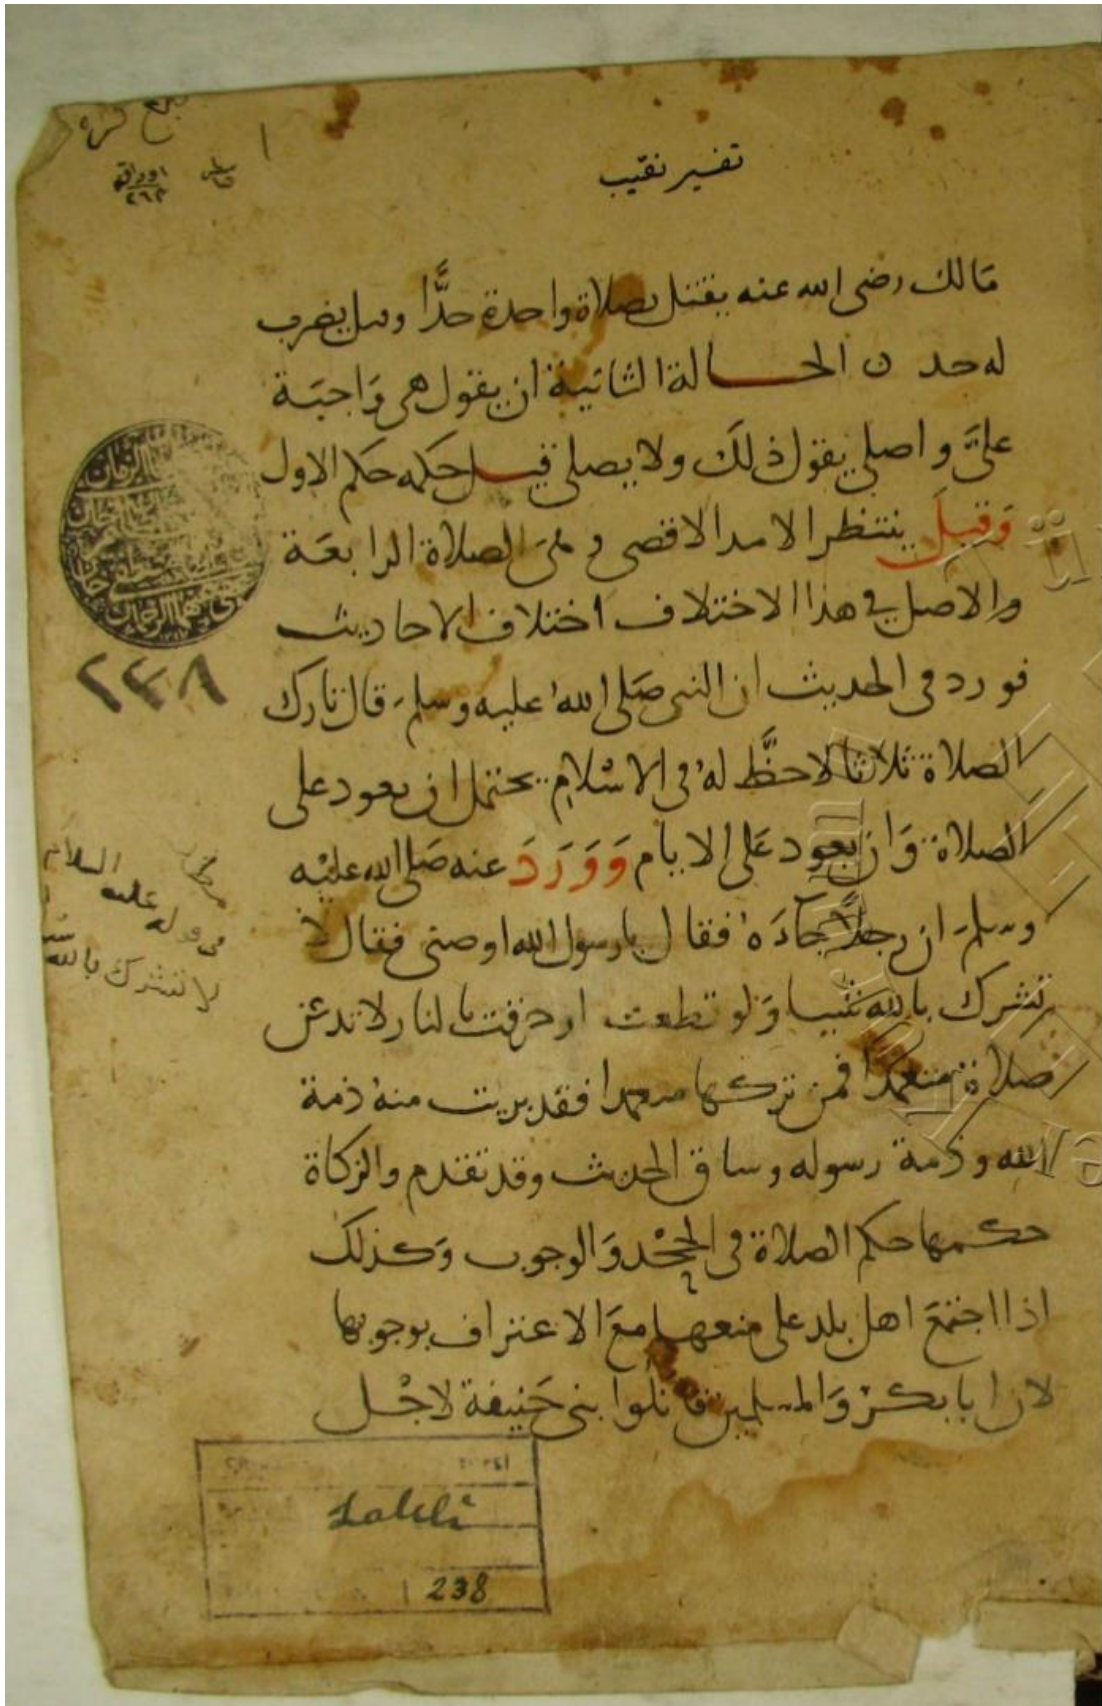 تفسير نقيب
اوراق
٢٦٢
مالك رضى الله عنه يقتل بصلاة واحدة حدًّا وقيل يضرب
له حد ن الحالة الثانية ان يقول هى وَاجبَة
علىَّ و اصلى يقول ذلكَ ولا يصلى قيل حكمه حكم الاول
وَقيلَ ينتظر الامد الاقصى وهىَ الصلاة الرابعَة
والاصل في هذا الاختلاف اختلاف الاحاديث
فورد فى الحديث ان النبى صَلى الله عليه وسلم قال تارك
الصلاة ثلاثا لاحظَّ لهُ فى الاسْلام يحتمل ان يعود على
الصلاة وَان يعود عَلى الايام وَوَرَدَ عنه صَلى الله عليْه
وسلم ان رجلاً جَآءَهُ فقال يا رسول الله اوصنى فقال لا
تشرك بالله شيا وَلو قطعت او حرقت بالنار ولا تدعن
صلاة متعمدا فمن تركها متعمدا فقد بريت منهُ ذمة
الله وذمة رسوله وساق الحديث وقد تقدم والزكاة
حكمها حكم الصلاة فى الجحْد وَالوجوب وَكذلك
اذا اجتمعَ اهل بلد على منعها معَ الاعتراف بوجوبها
لان ابا بكرْ وَالمسلمين قاتلوا بنى حَنيفة لاجْل
٢٣٨
مطلب
فى قوله عليه السلام
لا تشرك بالله
Laleli
238